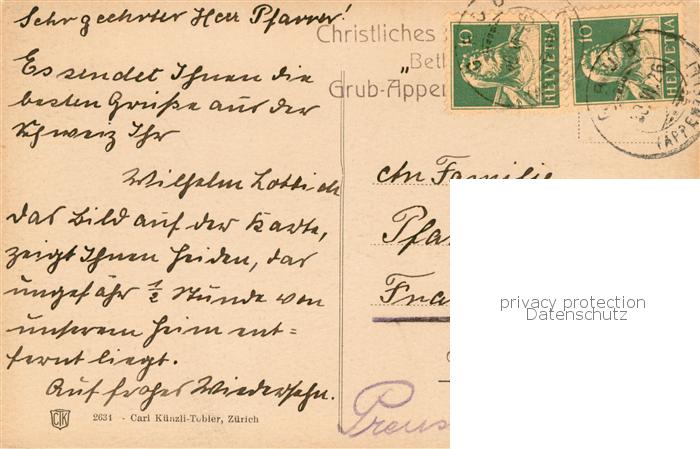 Sehr geehrter Herr Pfarrer!
Es sendet Ihnen die
besten Grüße aus der
Schweiz Ihr
Wilhelm
Das Bild auf der Karte,
zeigt Ihnen Heiden, das
ungefähr ½ Stunde von
unserem Heim ent=
fernt liegt.
Auf frohes Wiedersehn.
CTK
2631 - Carl Künzli-Tobler, Zürich
Christliches
Grub-Appen
10 HELVETIA
10 HELVETIA
GRUB
(APPENZ
An Familie
Pfa
Fra
Preus
privacy protection
Datenschutz